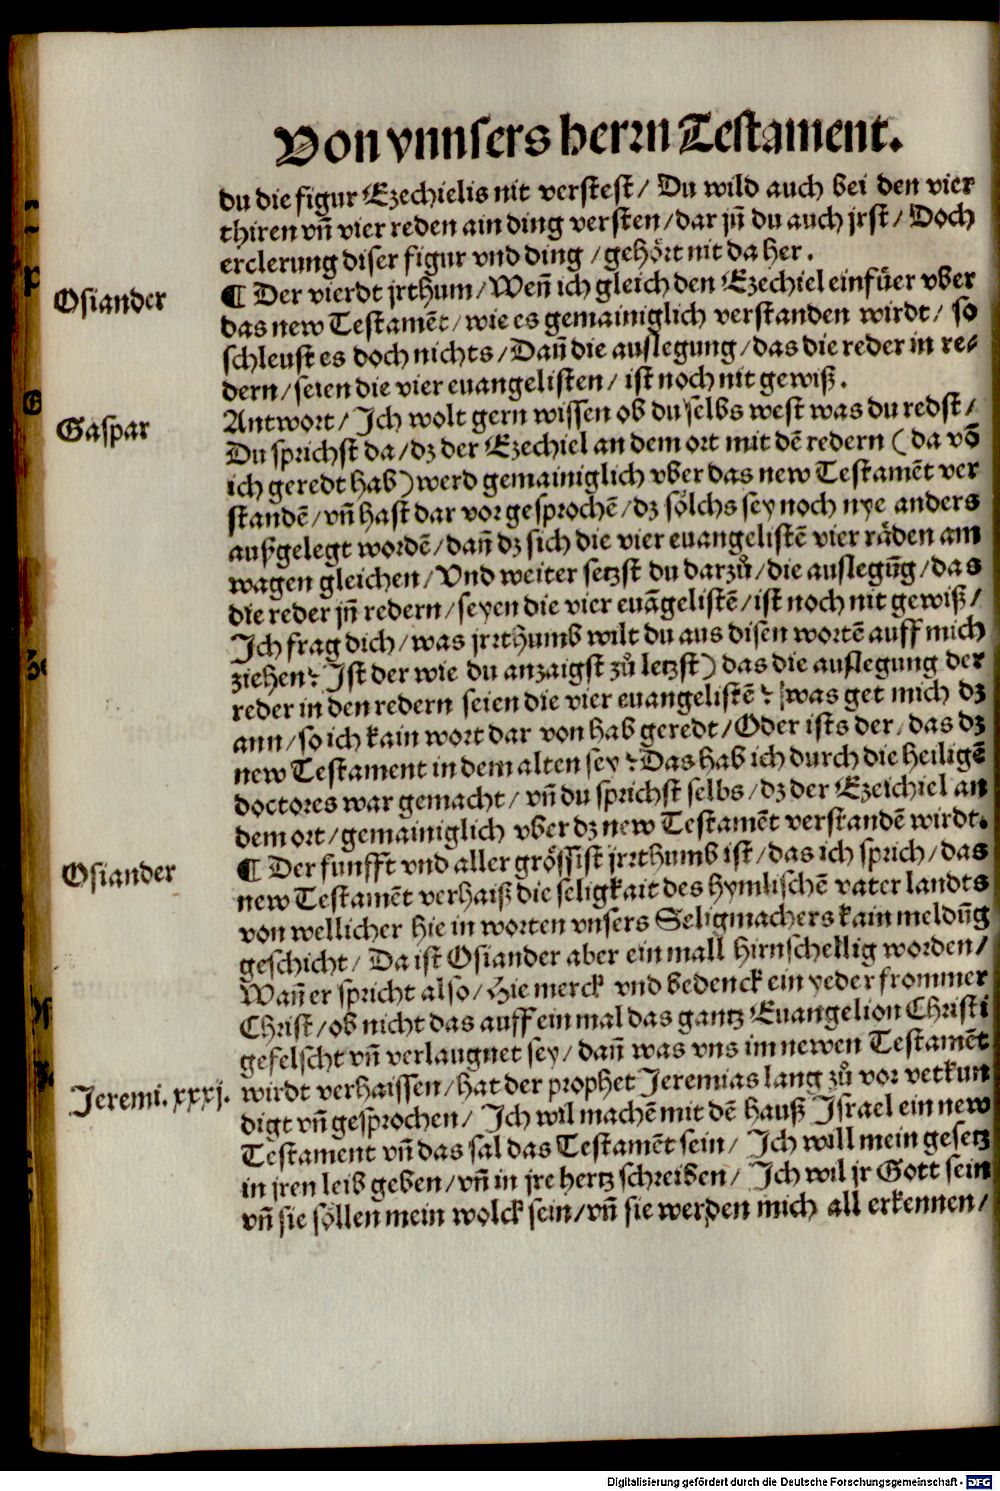 Von vnnsers herrn Testament.
du die figur Ezechielis nit verstest/ Du wild auch bei den vier
thiren vñ vier reden ain ding versten/dar jñ du auch jrst/ Doch
erclerung diser figur vnd ding /gehört nit da her.
Osiander
¶ Der vierdt jrthum/Weñ ich gleich den Ezechiel einfüer vber
das new Testamēt/wie es gemainiglich verstanden wirdt/ so
schleust es doch nichts/Dañ die auslegung/das die reder in re⸗
dern/seien die vier euangelisten/ ist noch nit gewiß.
Gaspar
Antwort/Ich wolt gern wissen ob du selbs west was du redst/
Du sprichst da/dz der Ezechiel an dem ort mit dē redern (da võ
ich geredt hab)werd gemainiglich vber das new Testamēt ver
standē/vñ hast dar vor gesprochē/dz sölchs sey noch nye anders
außgelegt wordē/dañ dz sich die vier euangelistē vier räden am
wagen gleichen/Vnd weiter setzst du darzů/die auslegũg/das
die reder jñ redern/seyen die vier euãgelistē/ist noch nit gewiß/
Ich frag dich/was jrrthumb wilt du aus disen wortē auff mich
ziehen? Ist der wie du anzaigst zů letzst) das die auslegung der
reder in den redern seien die vier euangelistē? was get mich dz
ann/so ich kain wort dar von hab geredt/Oder ists der/das dz
new Testament in dem alten sey? Das hab ich durch die heiligē
doctores war gemacht/vñ du sprichst selbs/dz der Ezeichiel an
dem ort/gemainiglich vber dz new Testamēt verstandē wirdt.
Osiander
¶ Der funfft vnd aller grössist jrrthumb ist/das ich sprich/das
new Testamēt verhaiß die seligkait des hymlischē vater landts
von wellicher hie in worten vnsers Seligmachers kain meldũg
geschicht/ Da ist Osiander aber ein mall hirnschellig worden/
Wañ er spricht also/Hie merck vnd bedenck ein yeder frommer
Christ/ob nicht das auff ein mal das gantz Euangelion Christi
gefelscht vñ verlaugnet sey/dañ was vns im newen Testamēt
Jeremi.xxxj.
wirdt verhaissen/hat der prophet Jeremias lang zů vor vetkun
digt vñ gesprochen/ Ich wil machē mit dē hauß Israel ein new
Testament vñ das sal das Testamēt sein/ Ich will mein gesetz
in jren leib geben/vñ in jre hertz schreiben/ Ich wil jr Gott sein
vñ sie söllen mein wolck sein/vñ sie werden mich all erkennen/
Digitalisierung gefördert durch die Deutsche Forschungsgemeinschaft - DFG